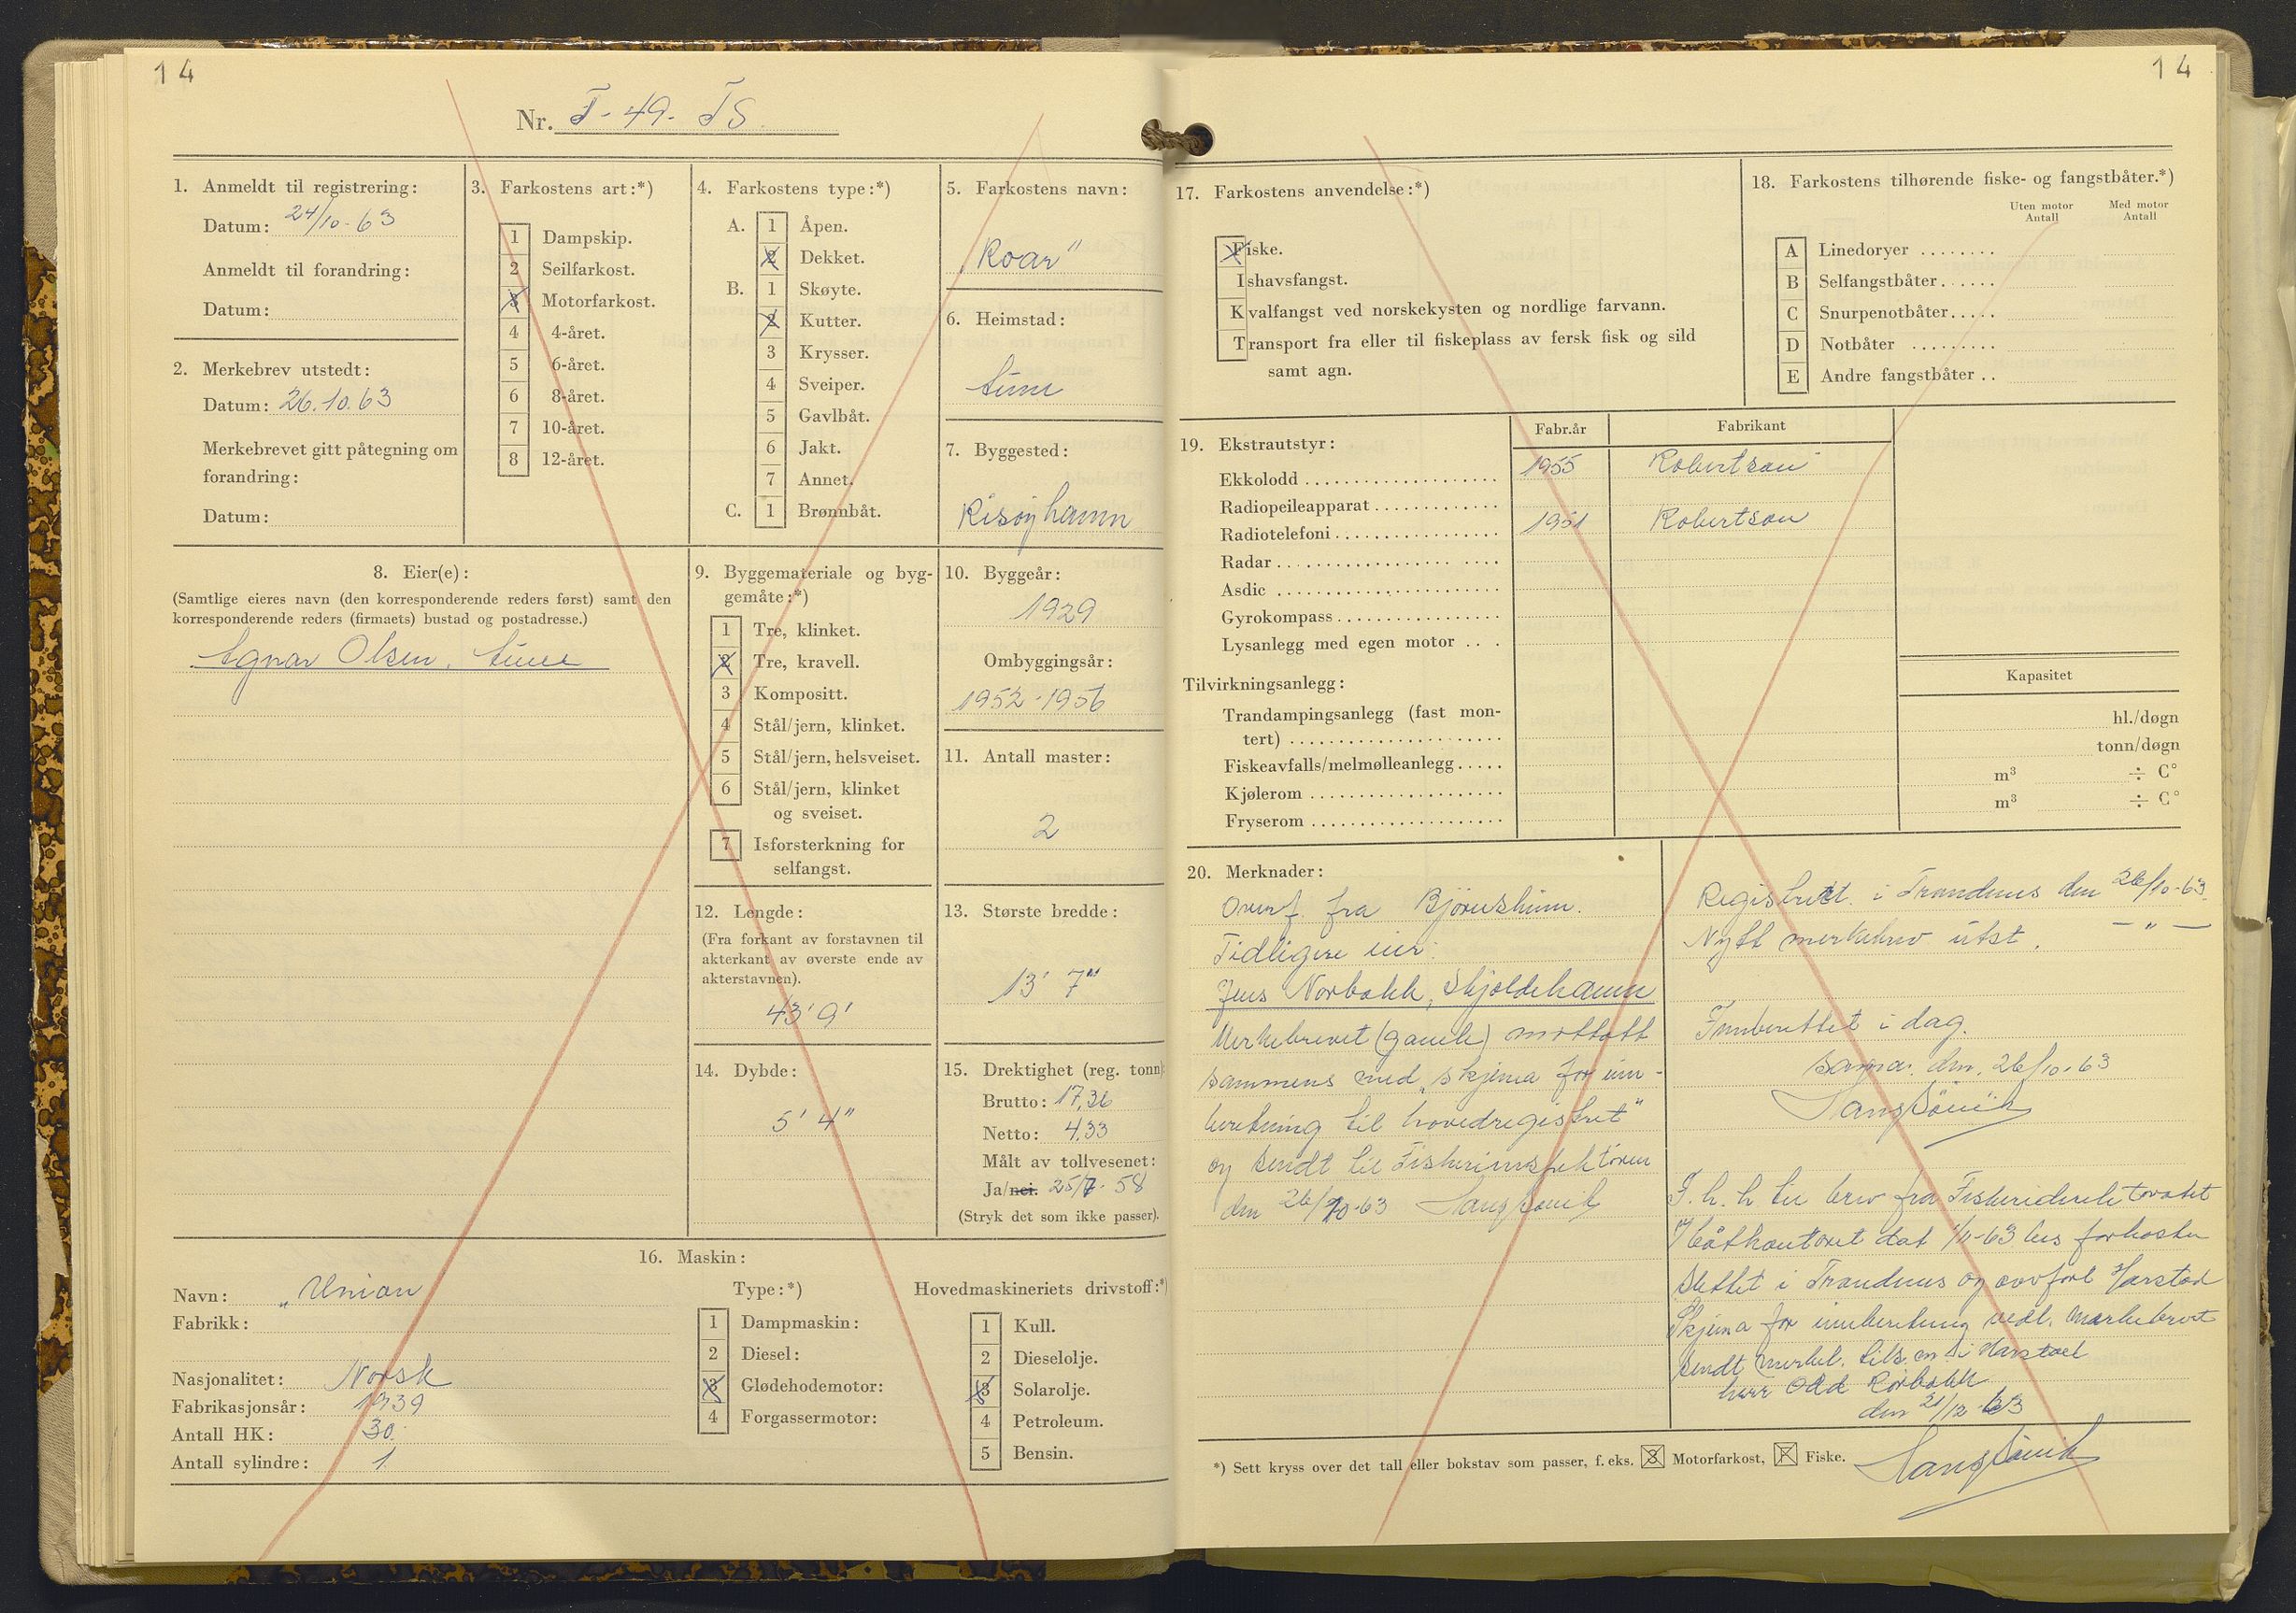 14
Nr. T-49-TS.
1. Anmeldt til registrering:
Datum: 24/10-63
Anmeldt til forandring:
Datum:
2. Merkebrev utstedt:
Datum: 26.10.63
Merkebrevet gitt påtegning om
forandring:
Datum:
3. Farkostens art:*)
1 Dampskip.
2 Seilfarkost.
3 Motorfarkost.
4 4-året.
5 6-året.
6 8-året.
7 10-året.
8 12-året.
4. Farkostens type:*)
A. 1 Åpen.
2 Dekket.
B. 1 Skøyte.
2 Kutter.
3 Krysser.
4 Sveiper.
5 Gavlbåt.
6 Jakt.
7 Annet.
C. 1 Brønnbåt.
5. Farkostens navn:
"Roar"
6. Heimstad:
7. Byggested:
Risøyhamn
8. Eier(e):
(Samtlige eieres navn (den korresponderende reders først) samt den
korresponderende reders (firmaets) bustad og postadresse.)
Agnar Olsen,
9. Byggemateriale og byg-
gemåte:*)
1 Tre, klinket.
2 Tre, kravell.
3 Kompositt.
4 Stål/jern, klinket.
5 Stål/jern, helsveiset.
6 Stål/jern, klinket
og sveiset.
7 Isforsterkning for
selfangst.
10. Byggeår:
1929
Ombyggingsår:
1952-1956
11. Antall master:
2
12. Lengde:
(Fra forkant av forstavnen til
akterkant av øverste ende av
akterstavnen).
43' 9'
13. Største bredde:
13' 7"
14. Dybde:
5' 4"
15. Drektighet (reg. tonn):
Brutto: 17,36
Netto: 4,33
Målt av tollvesenet:
Ja/nei. 25/7-58
(Stryk det som ikke passer).
16. Maskin:
Navn: "Union
Fabrikk:
Nasjonalitet: Norsk
Fabrikasjonsår: 1939
Antall HK: 30
Antall sylindre: 1
Type:*)
1 Dampmaskin:
2 Diesel:
3 Glødehodemotor:
4 Forgassermotor:
Hovedmaskineriets drivstoff:*)
1 Kull.
2 Dieselolje.
3 Solarolje.
4 Petroleum.
5 Bensin.
14
17. Farkostens anvendelse:*)
Fiske.
Ishavsfangst.
Kvalfangst ved norskekysten og nordlige farvann.
Transport fra eller til fiskeplass av fersk fisk og sild
samt agn.
18. Farkostens tilhørende fiske- og fangstbåter.*)
Uten motor Antall
Med motor Antall
A Linedoryer ........
B Selfangstbåter ......
C Snurpenotbåter .....
D Notbåter .........
E Andre fangstbåter ..
19. Ekstrautstyr:
Fabr.år Fabrikant
Ekkolodd .................... 1955 Robertson
Radiopeileapparat .............
Radiotelefoni ................. 1951 Robertson
Radar .......................
Asdic .......................
Gyrokompass .................
Lysanlegg med egen motor ...
Tilvirkningsanlegg:
Kapasitet
Trandampingsanlegg (fast mon-
tert) ...................... hl./døgn
Fiskeavfalls/melmølleanlegg ..... tonn/døgn
Kjølerom .................... m³ ÷ C°
Fryserom .................... m³ ÷ C°
20. Merknader:
Overf. fra Bjørnskinn.
Tidligere eier:
Jens Norbakk, Skjoldehamn
Merkebrevet (gamle) mottatt
sammens med "skjema for inn-
beretning til hovedregistret"
og sendt til Fiskeriinspektøren
den 26/10-63
Registrert i Trondenes den 26/10-63.
Nytt merkebrev utst. — " —
Innberettet i dag.
den 26/10-63
F.h.h til brev fra Fiskeridirektoratet
Båtkontoret dat 1/11-63 bes farkosten
slettet i Trondenes og overført Harstad
Skjema for innberetning vedl. merkebrevet
sendt merkel. tils.m. i Harstad
herr Odd Rørbakk
den 21/12-63
*) Sett kryss over det tall eller bokstav som passer, f.eks. 3 Motorfarkost, F Fiske.